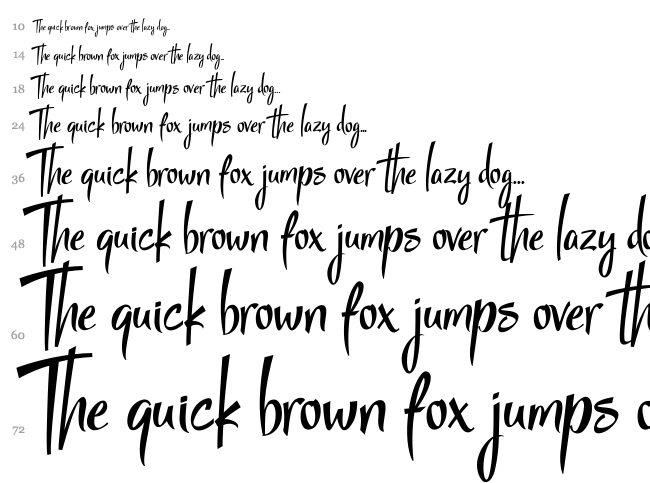 10 The quick brown fox jumps over the lazy dog...
14 The quick brown fox jumps over the lazy dog...
18 The quick brown fox jumps over the lazy dog...
24 The quick brown fox jumps over the lazy dog...
36 The quick brown fox jumps over the lazy dog...
48 The quick brown fox jumps over the lazy do
60 The quick brown fox jumps over th
72 The quick brown fox jumps o